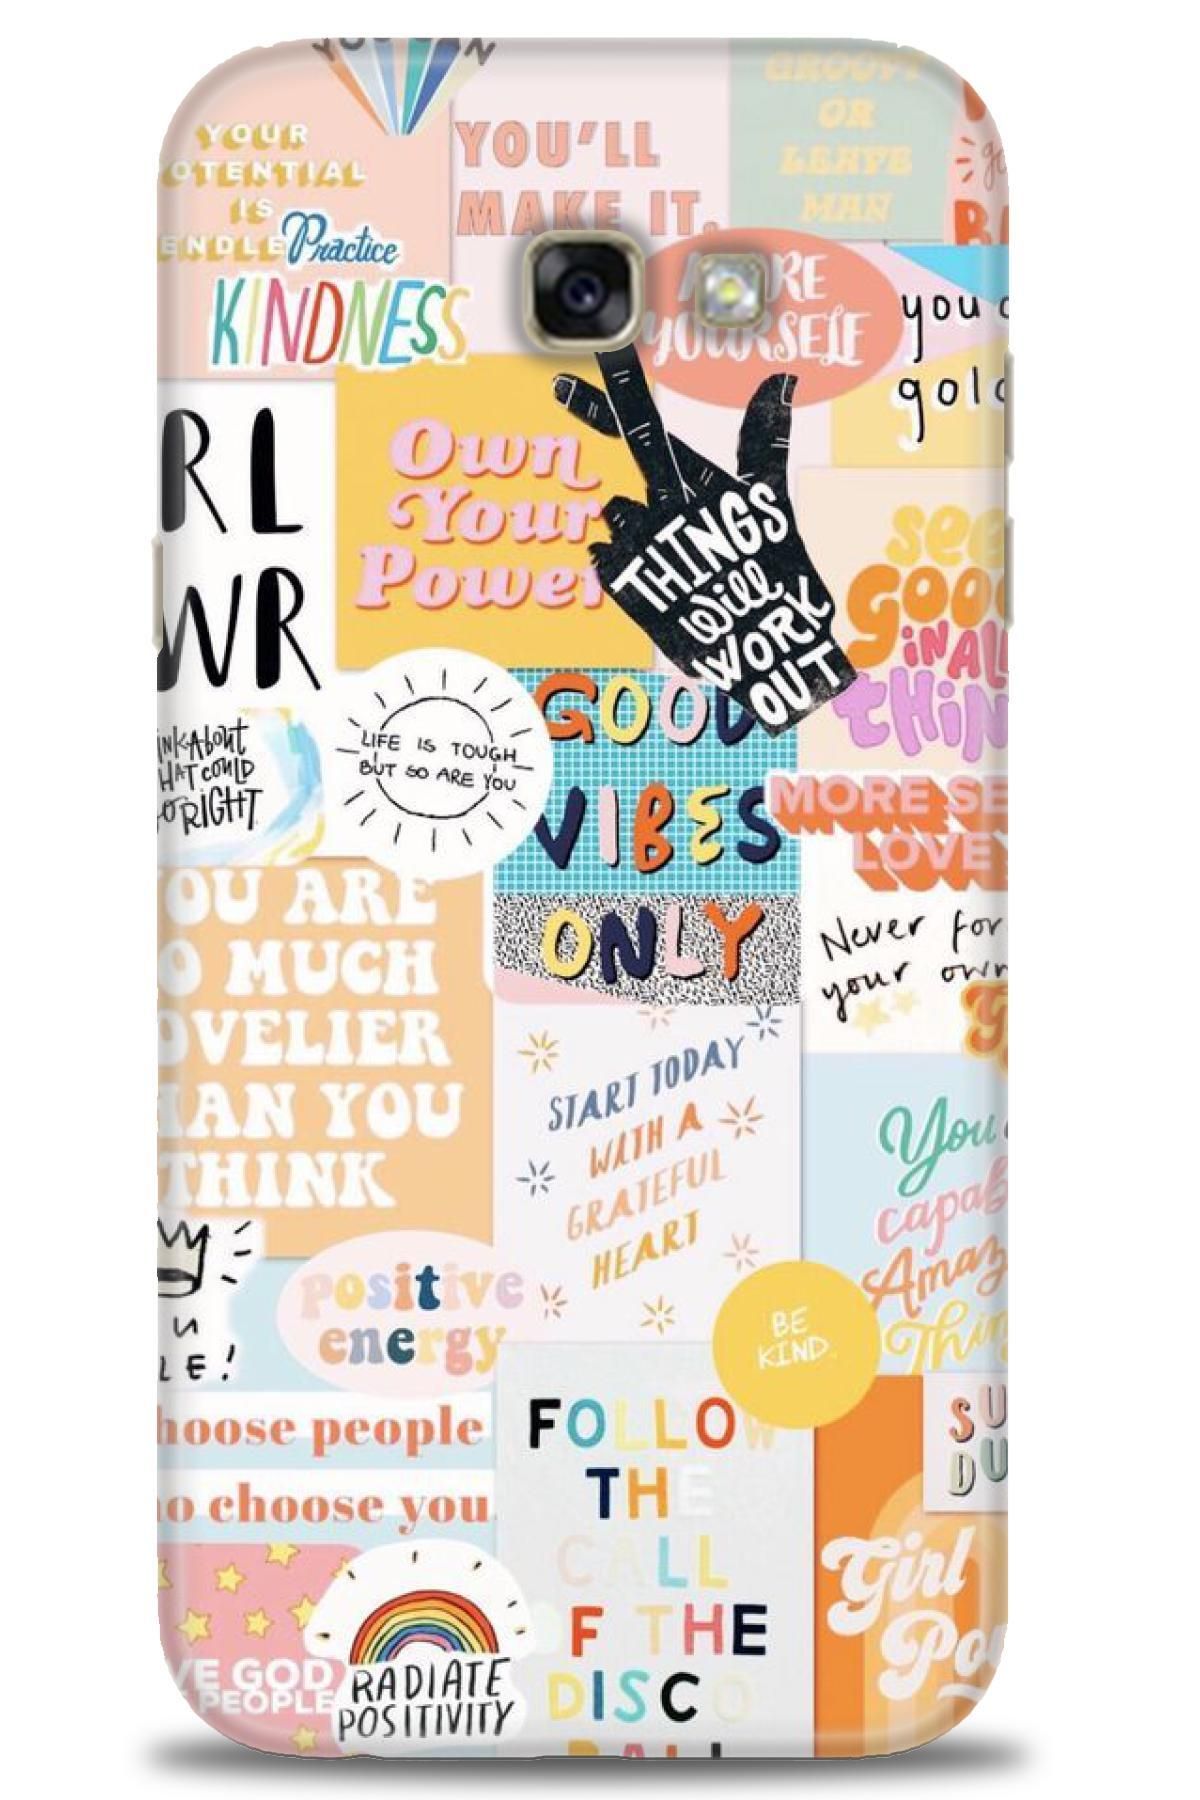 YOU CAN
YOUR
POTENTIAL
IS
ENDLE
Practice
KINDNESS
YOU'LL
MAKE IT.
GROOVY
OR
LEAVE
MAN
YOURSELF
you
gold
RL
WR
Own
Your
Power
THINGS
Will
WORK
OUT
see
GOOD
iN ALL
THiN
INK ABOUT
HAT COULD
GO RIGHT
LIFE IS TOUGH
BUT SO ARE YOU
GOOD
VIBES
ONLY
MORE SE
LOVE
Never for
your own
OU ARE
O MUCH
OVELIER
HAN YOU
THINK
START TODAY
WITH A
GRATEFUL
HEART
You
capab
Amaz
Thin
positive
energy
BE
KIND.
LE!
hoose people
ho choose you.
FOLLOW
THE
CALL
OF THE
DISCO
BALL
SU
DU
Girl
Po
VE GOD
PEOPLE
RADIATE
POSITIVITY